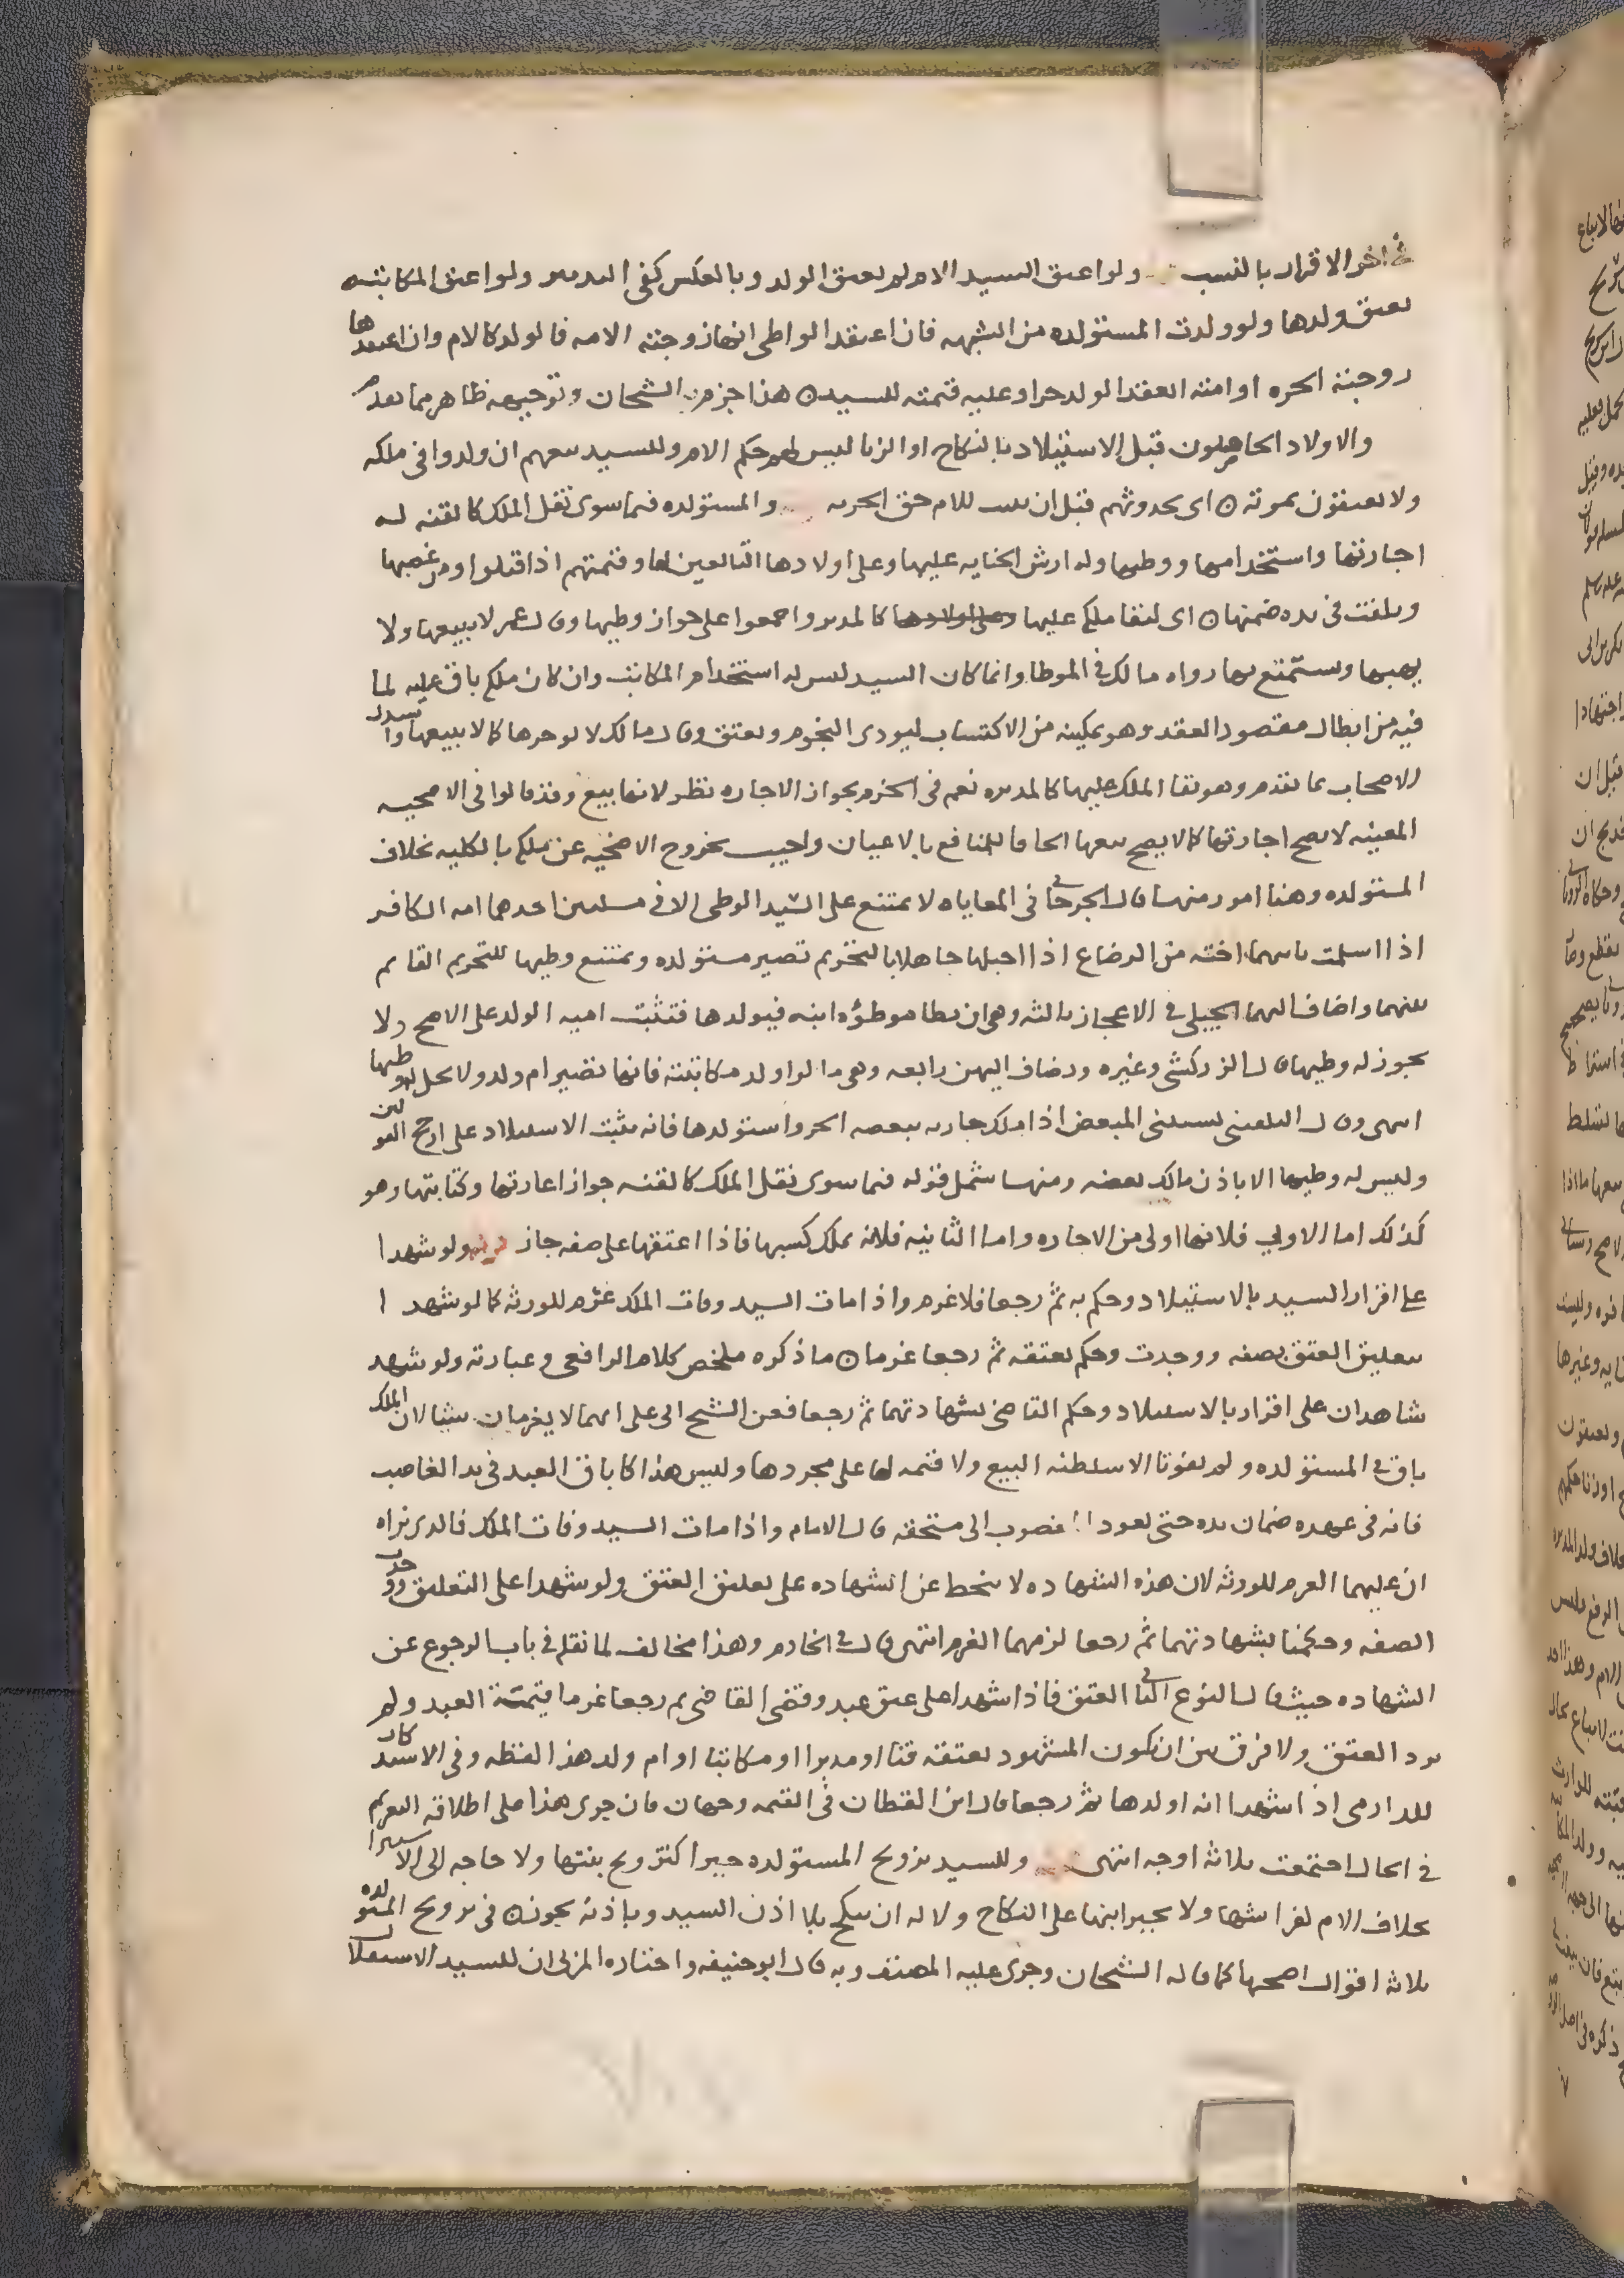 في اخر الاقرار بالنسب ولو اعتق السيد الام لم يعتق الولد وبالعكس كفى التدبير ولو اعتق المكاتبه
يعتق ولدها ولو ولدت المستولده من الشبهه فان اعتقد الواطى انها زوجته الامه فالولد كالام وان اعتقدها
زوجته الحره او امته انعقد الولد حرا وعليه قيمته للسيد ن هذا جزم به الشيخان وتوجيهه ظاهر مما تقدم
والاولاد الحاصلون قبل الاستيلاد بالنكاح او الزنا ليس لهم حكم الام وللسيد بيعهم ان ولدوا في ملكه
ولا يعتقون بموته ن اى لحدوثهم قبل ان يثبت للام حق الحريه والمستولده فيما سوى نقل الملك كالقنه له
اجارتها واستخدامها ووطيها وله ارش الجنايه عليها وعلى اولادها التابعين لها وقيمتهم اذا قتلوا ومن غصبها
وتلفت في يده ضمنها ن اى لبقا ملكه عليها وعلى اولادها كالمدبر واجمعوا على جواز وطيها وقال عمر لا يبيعها ولا
يهبها ويستمتع بها رواه مالك في الموطا وانما كان السيد ليس له استخدام المكاتب وان كان ملكه باق عليه لما
فيه من ابطال مقصود العقد وهو تمكينه من الاكتساب ليودى النجوم ويعتق وقال مالك لا يوجرها كما لا يبيعها واستدل
الاصحاب بما تقدم وهو بقا الملك عليها كالمدبره نعم في الجزم بجواز الاجاره نظر لانها بيع وقد قالوا في الاضحيه
المعينه لا يصح اجارتها كما لا يصح بيعها الحاقا للمنافع بالاعيان واجيب بخروج الاضحيه عن ملكه بالكليه بخلاف
المستولده وهنا امور منها قال الجرجاني في المعاياه لا يمتنع على السيد الوطى الا في مسلتين احدهما امه الكافر
اذا اسلمت ثانيهما اخته من الرضاع اذا احبلها جاهلا بالتحريم تصير مستولده ويمتنع وطيها للتحريم القايم
بينهما واضاف اليهما الجيلي في الاعجاز ثالثه وهى ان يطا موطؤه ابنه فيولدها فتثبت اميه الولد على الاصح ولا
يجوز له وطيها قال الزركشي وغيره ويضاف اليهن رابعه وهى ما لو اولد مكاتبته فانها تصير ام ولد ولا يحل له وطيها
انتهى وقال البلقينى يستثنى المبعض اذا ملك جاريه ببعضه الحر واستولدها فانه يثبت الاستيلاد على ارجح القولين
وليس له وطيها الا باذن مالك بعضه ومنها شمل قوله فيما سوى نقل الملك كالقنه جواز اعارتها وكتابتها وهو
كذلك اما الاولى فلانها اولى من الاجاره واما الثانيه فلانه يملك كسبها فاذا اعتقها على صفه جاز ولو شهدا
على اقرار السيد بالاستيلاد وحكم به ثم رجعا فلا غرم واذا مات السيد وفات الملك غرم للورثه كما لو شهدا
بتعليق العتق بصفه ووجدت وحكم بعتقه ثم رجعا غرما ن ما ذكره ملخص كلام الرافعى وعبارته ولو شهد
شاهدان على اقرار بالاستيلاد وحكم القاضى بشهادتهما ثم رجعا فعن الشيخ ابى على انهما لا يغرمان شيا لان الملك
باق في المستولده ولم يفوتا الا سلطنه البيع ولا قيمه لها على مجردها وليس هذا كاباق العبد في يد الغاصب
فانه في عهده ضمان يده حتى يعود المغصوب الى مستحقه قال الامام واذا مات السيد وفات الملك فالذى نراه
ان عليهما الغرم للورثه لان هذه الشهاده لا تنحط عن الشهاده على تعليق العتق ولو شهدا على التعليق ووجدت
الصفه وحكمنا بشهادتهما ثم رجعا لزمهما الغرم انتهى قال في الخادم وهذا مخالف لما نقله في باب الرجوع عن
الشهاده حيث قال النوع الثاني العتق فاذا شهدا على عتق عبد وقضى القاضى ثم رجعا غرما قيمة العبد ولم
يرد العتق ولا فرق بين ان يكون المشهود بعتقه قنا او مدبرا او مكاتبا او ام ولد هذا لفظه وفى الاستذكار
للدارمى اذا شهدا انه اولدها ثم رجعا قال ابن القطان في القيمه وجهان فان جرى هذا على اطلاقه التغريم
في الحال اجتمعت ثلاثة اوجه انتهى وللسيد تزويج المستولده جبرا كتزويج بنتها ولا حاجه الى الاستبرا
بخلاف الام لفراشها ولا يجبر ابنها على النكاح ولا له ان ينكح بلا اذن السيد وباذنه يجوز ن في تزويج المستولده
ثلاثة اقوال اصحها كما قاله الشيخان وجرى عليه المصنف وبه قال ابو حنيفه واختاره المزنى ان للسيد الاستقلال